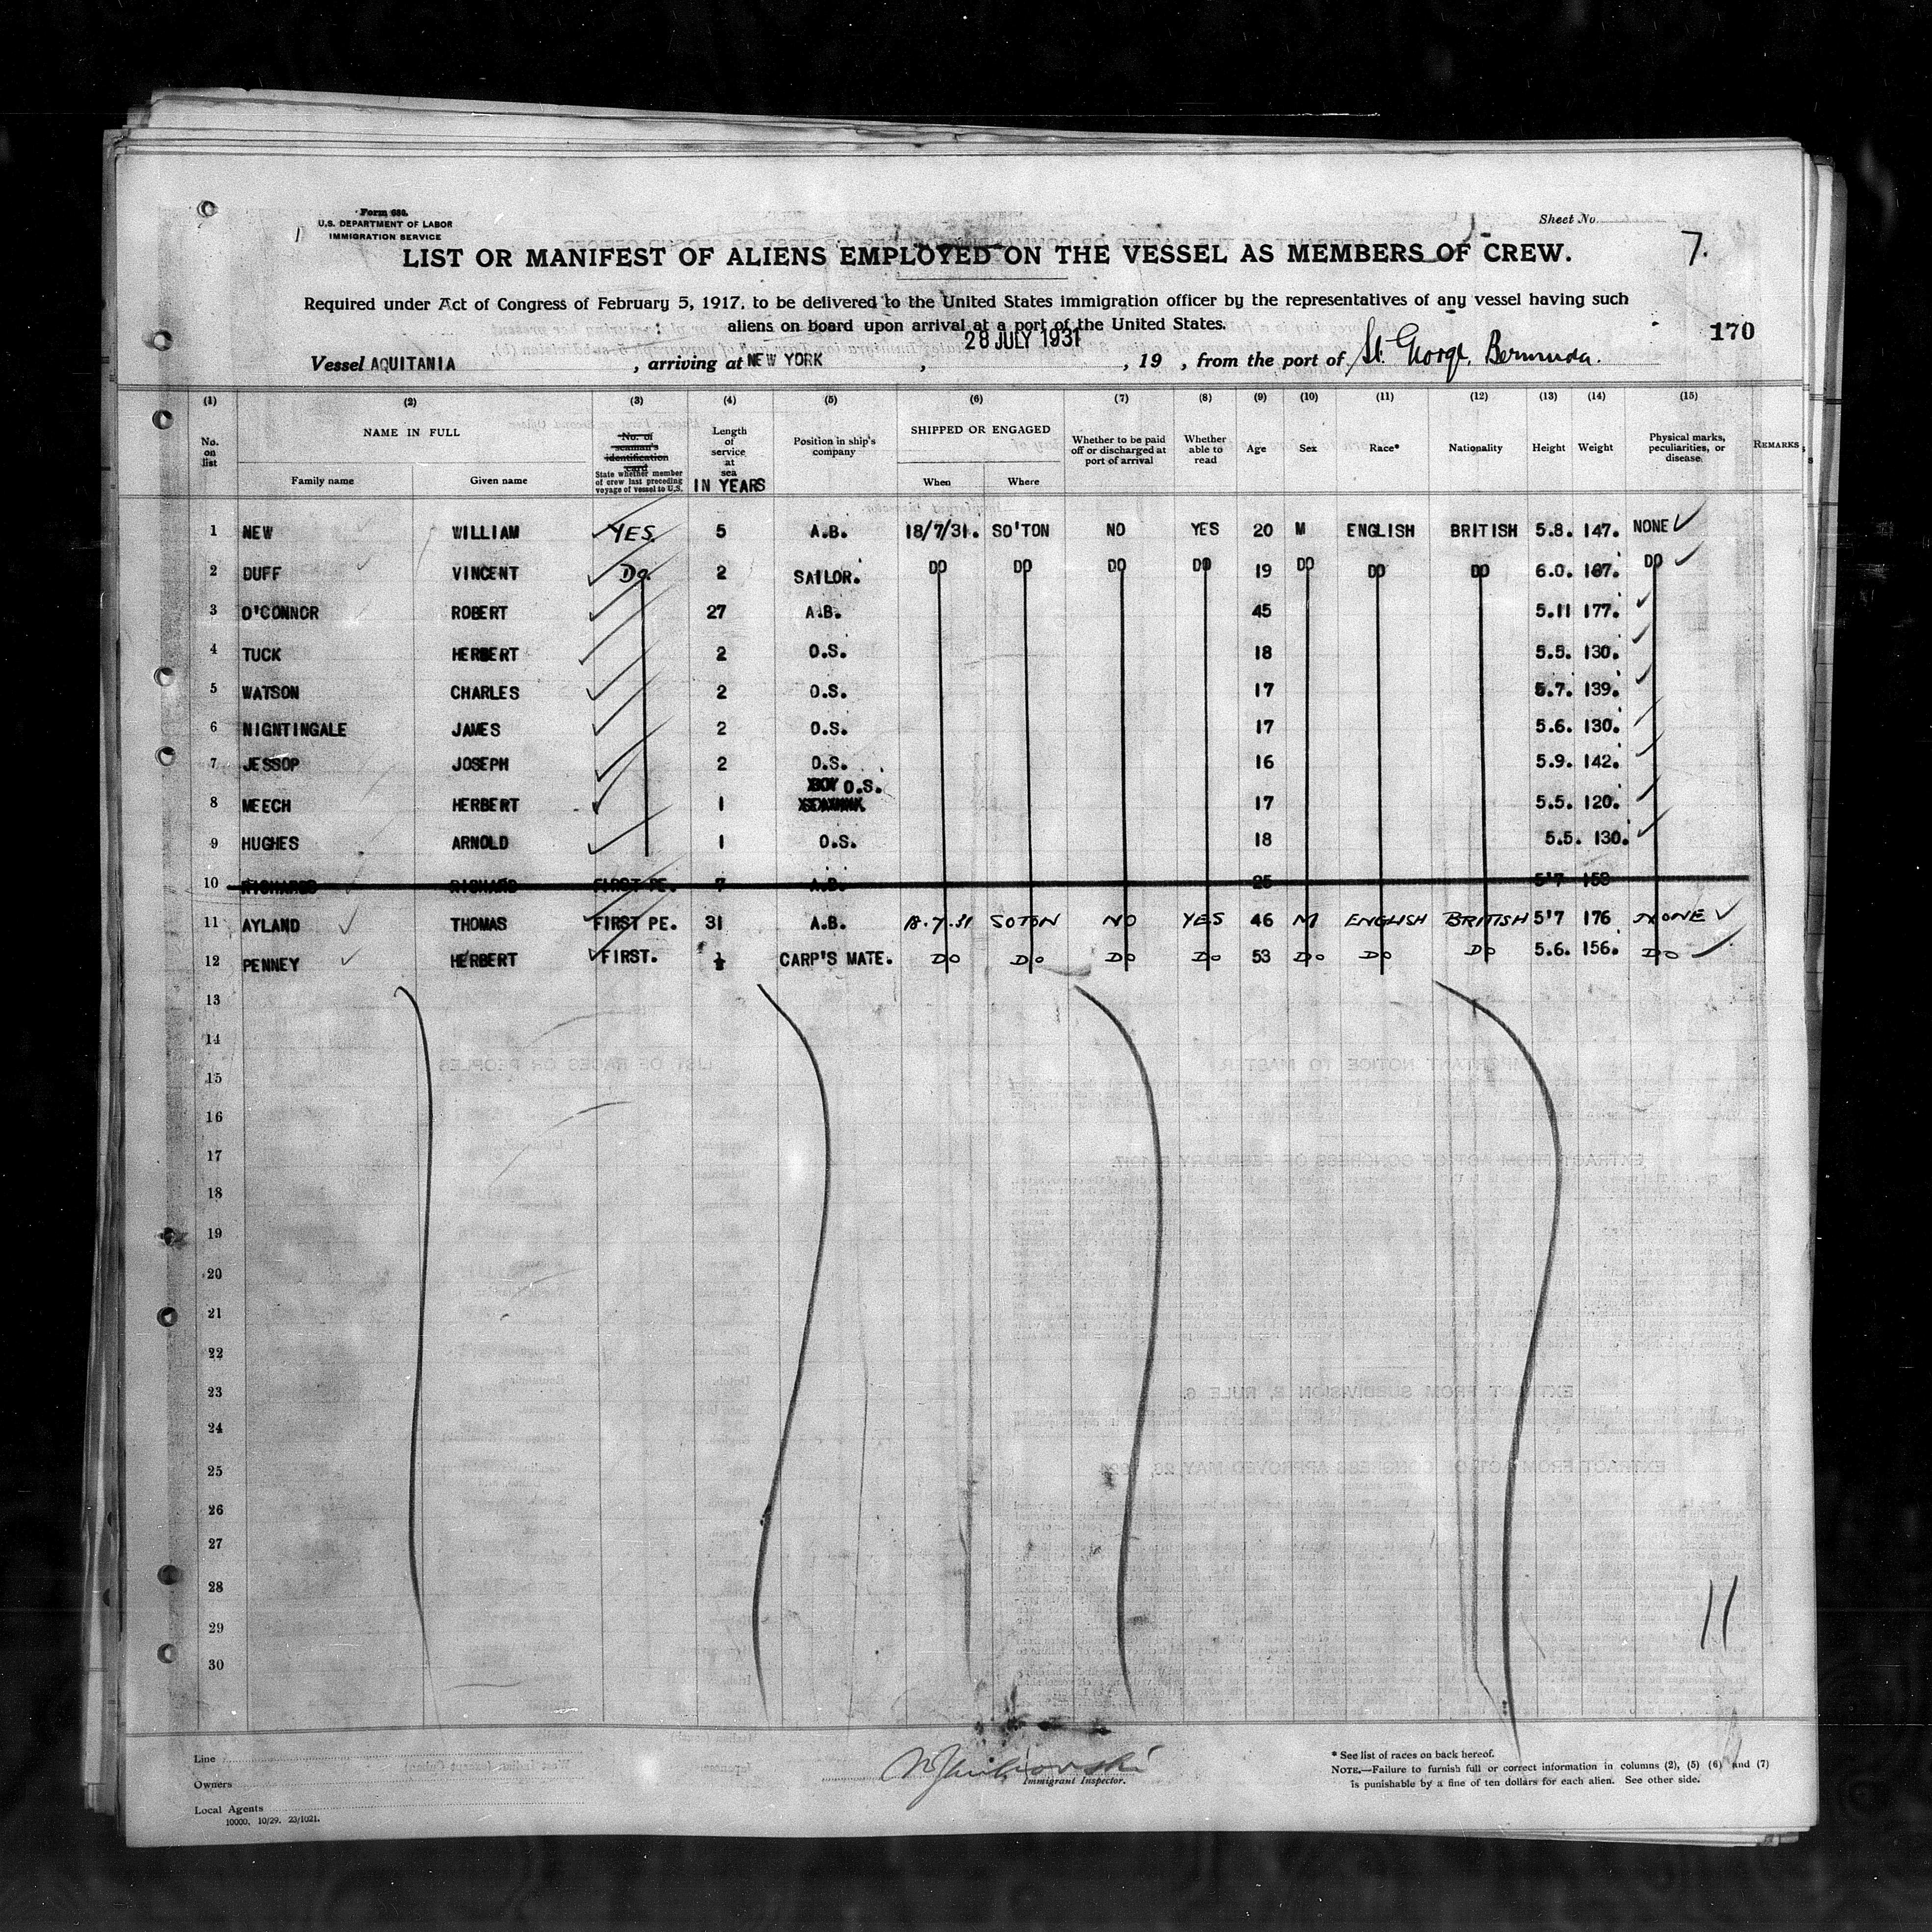 Form 680.
U.S. DEPARTMENT OF LABOR
IMMIGRATION SERVICE
Sheet No.
7.
LIST OR MANIFEST OF ALIENS EMPLOYED ON THE VESSEL AS MEMBERS OF CREW.
Required under Act of Congress of February 5, 1917, to be delivered to the United States immigration officer by the representatives of any vessel having such
aliens on board upon arrival at a port of the United States.
170
28 JULY 1931
Vessel AQUITANIA, arriving at NEW YORK, , 19 , from the port of St. George, Bermuda.
(1) (2) (3) (4) (5) (6) (7) (8) (9) (10) (11) (12) (13) (14) (15)
No. on list NAME IN FULL Family name Given name No. of seaman's identification card State whether member of crew last preceding voyage of vessel to U.S. Length of service at sea IN YEARS Position in ship's company SHIPPED OR ENGAGED When Where Whether to be paid off or discharged at port of arrival Whether able to read Age Sex Race* Nationality Height Weight Physical marks, peculiarities, or disease. REMARKS
1 NEW WILLIAM YES. 5 A.B. 18/7/31. SO'TON NO YES 20 M ENGLISH BRITISH 5.8. 147. NONE
2 DUFF VINCENT Do. 2 SAILOR. DO DO DO DO 19 DO DO DO 6.0. 167. DO
3 O'CONNOR ROBERT 27 A.B. 45 5.11 177.
4 TUCK HERBERT 2 O.S. 18 5.5. 130.
5 WATSON CHARLES 2 O.S. 17 5.7. 139.
6 NIGNTINGALE JAMES 2 O.S. 17 5.6. 130.
7 JESSOP JOSEPH 2 O.S. 16 5.9. 142.
8 MEECH HERBERT 1 BOY O.S. 17 5.5. 120.
9 HUGHES ARNOLD 1 O.S. 18 5.5. 130.
10 RICHARDS RICHARD FIRST PE. 7 A.B. 25 5'7 158
11 AYLAND THOMAS FIRST PE. 31 A.B. 18.7.31 SOTON NO YES 46 M ENGLISH BRITISH 5'7 176 NONE
12 PENNEY HERBERT FIRST. ½ CARP'S MATE. DO DO DO DO 53 DO DO DO 5.6. 156. DO
13
14
15
16
17
18
19
20
21
22
23
24
25
26
27
28
29
30
11
Line
Owners
Local Agents
10000. 10/29. 23/1021.
Immigrant Inspector.
* See list of races on back hereof.
NOTE.—Failure to furnish full or correct information in columns (2), (5) (6) and (7)
is punishable by a fine of ten dollars for each alien. See other side.